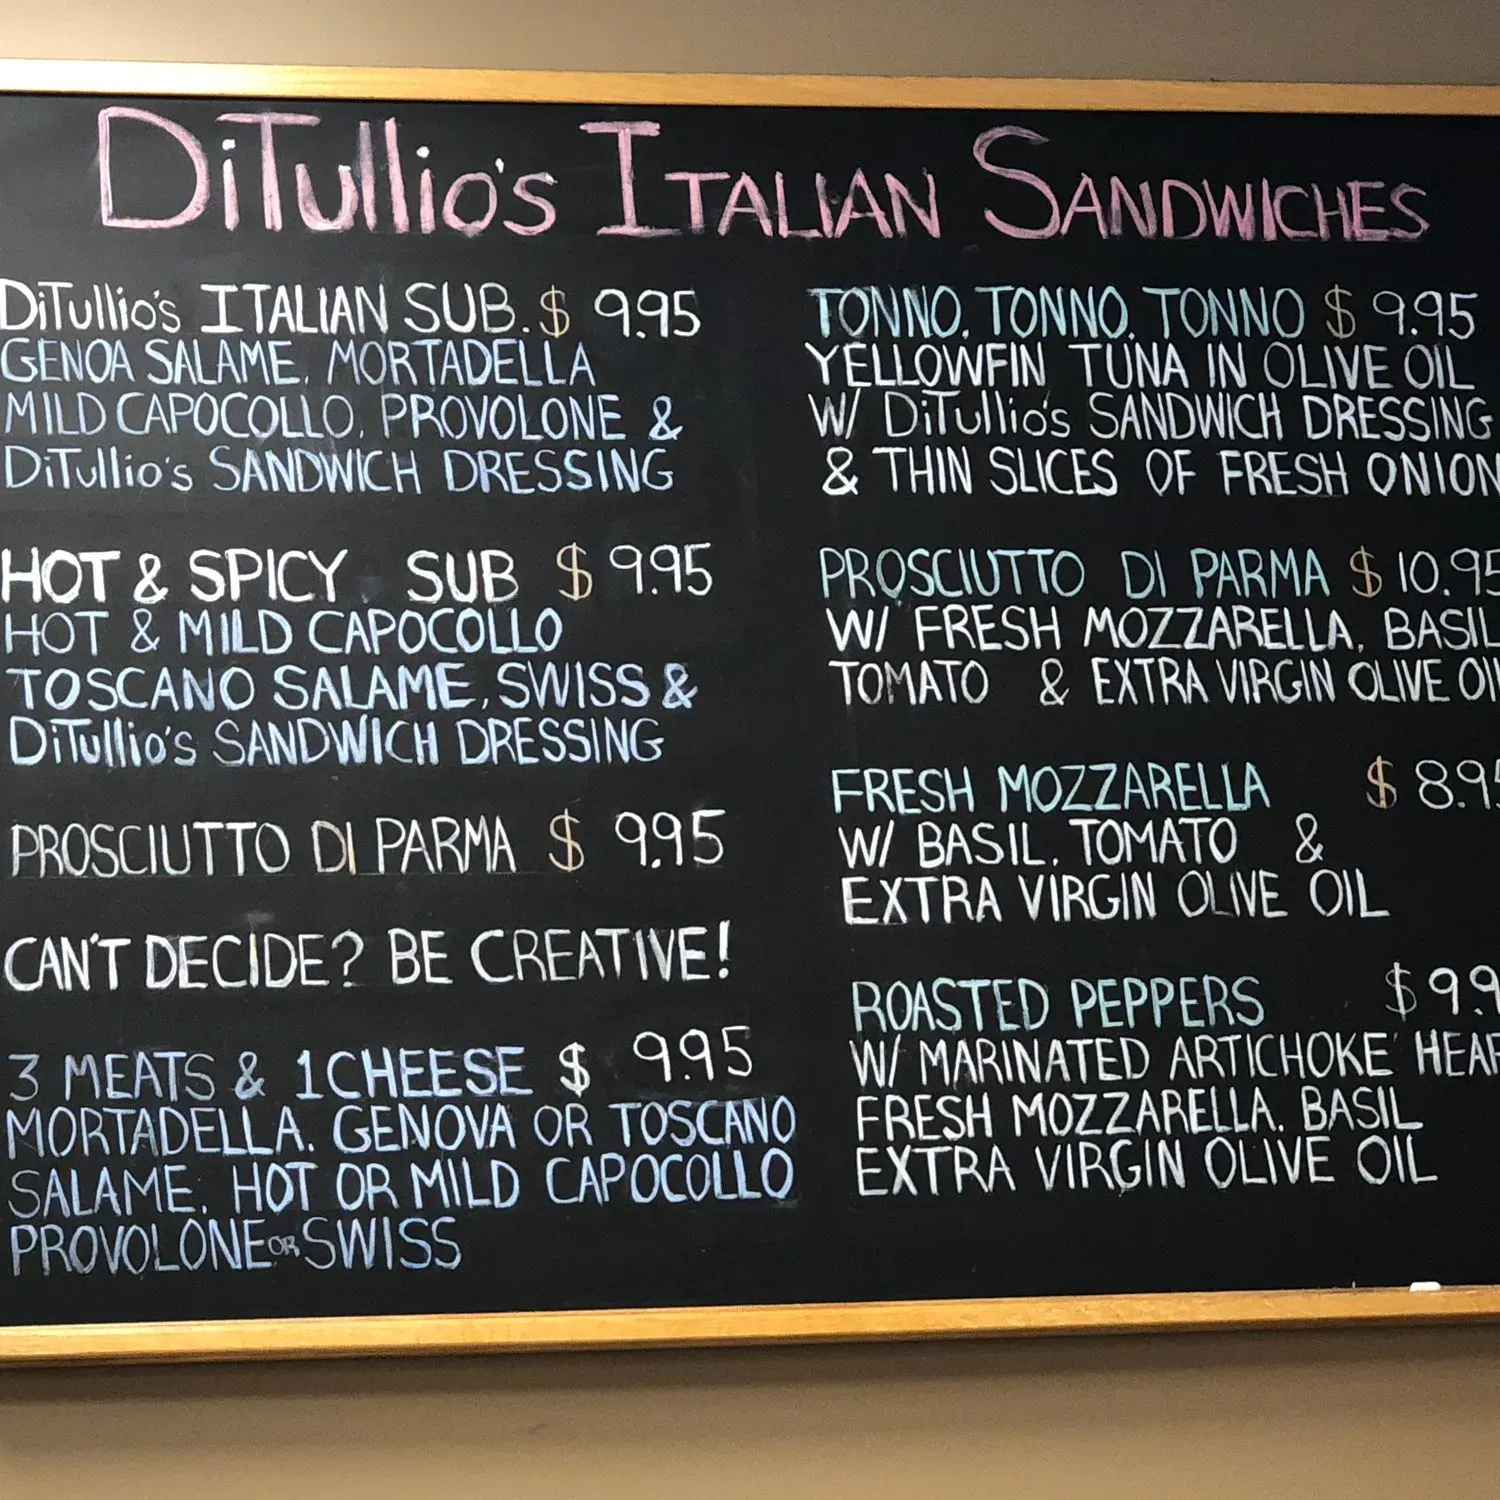 DiTullio's ITALIAN SANDWICHES
DiTullio's ITALIAN SUB. $ 9.95
GENOA SALAME, MORTADELLA
MILD CAPOCOLLO, PROVOLONE &
DiTullio's SANDWICH DRESSING
HOT & SPICY SUB $ 9.95
HOT & MILD CAPOCOLLO
TOSCANO SALAME, SWISS &
DiTullio's SANDWICH DRESSING
PROSCIUTTO DI PARMA $ 9.95
CAN'T DECIDE? BE CREATIVE!
3 MEATS & 1 CHEESE $ 9.95
MORTADELLA. GENOVA OR TOSCANO
SALAME. HOT OR MILD CAPOCOLLO
PROVOLONE OR SWISS
TONNO, TONNO, TONNO $ 9.95
YELLOWFIN TUNA IN OLIVE OIL
W/ DiTullio's SANDWICH DRESSING
& THIN SLICES OF FRESH ONION
PROSCIUTTO DI PARMA $ 10.95
W/ FRESH MOZZARELLA, BASIL
TOMATO & EXTRA VIRGIN OLIVE OI
FRESH MOZZARELLA $ 8.95
W/ BASIL, TOMATO &
EXTRA VIRGIN OLIVE OIL
ROASTED PEPPERS $ 9.9
W/ MARINATED ARTICHOKE HEAR
FRESH MOZZARELLA, BASIL
EXTRA VIRGIN OLIVE OIL